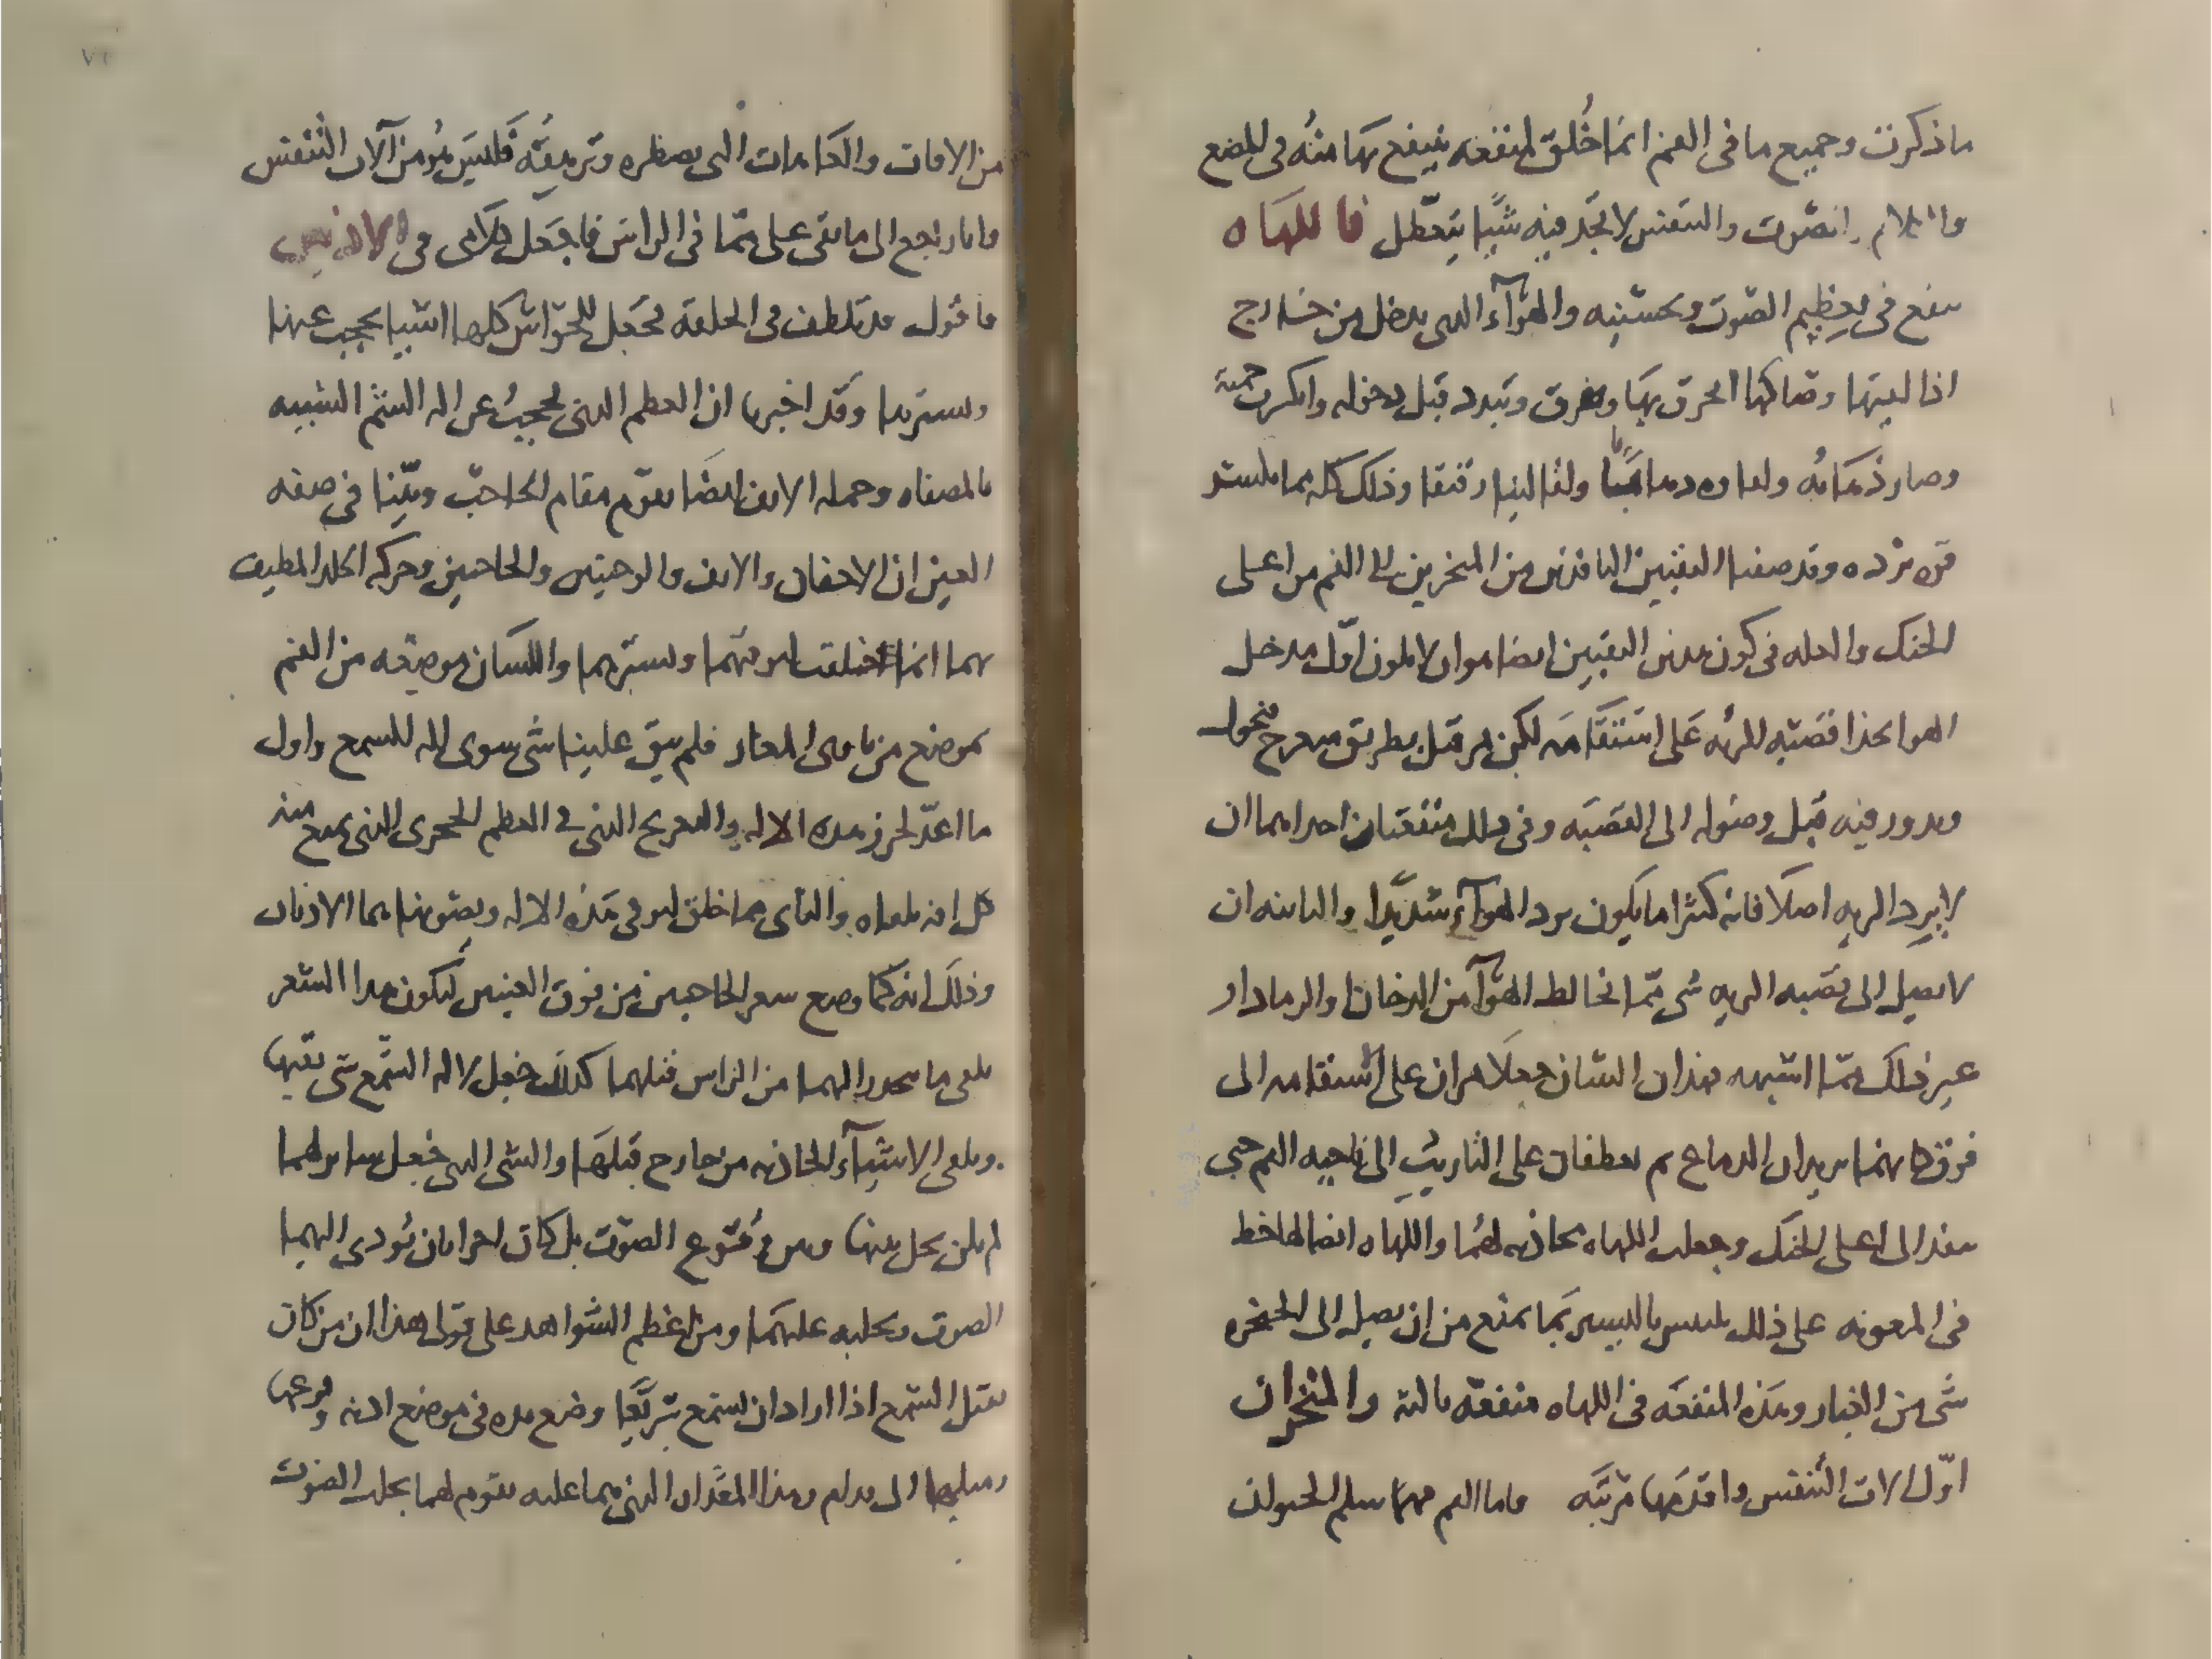 ما ذكرت وجميع ما في الفم انما خُلق لمنفعه ينتفع بها منه في المضع
والكلام والصوت والتنفس لا تجد فيه شيًا يتعطل فاللهاه
ينفع في تعظيم الصوت وتحسينه والهوآء الدى يدخل من خارج
اذا لقيها وصاكها انحرق بها وتفرق وتبدد قبل دخوله وانكرت
وصار ذهابه ولقاوه ولقا لينا رقيقا وذلك كله مما يكسر
قوه برده وقد وصفنا الثقبين النافذين من المنخرين الى الفم من اعلى
الحنك والعله في كون هذين الثقبين ايضا هو ان لا يكون اول مدخل
الهوا بحذا قصبه الريه على استقامه لكن من قبل بطريق معرج
ويدور فيه قبل وصوله الى القصبه وفي ذلك منفعتان احداهما ان
لا يبرد الريه اصلا فانه كثيرا ما يكون برد الهوآء شديدا والثانيه ان
لا يصل الى قصبه الريه شى مما يخالط الهوآ من الدخان والرماد او
غير ذلك مما اشبهه فهذان الشان جعلا يمران على استقامه الى
فوق كانهما يريدان الدماغ ثم يعطفان على التاريب الى ناحيه الفم حتى
ينفذا الى اعلى الحنك وجعلت اللهاه محاذيه لهما واللهاه ايضا لها حظ
في المعونه على ذلك ليس باليسير بما يمنع من ان يصل الى الحنجره
شى من الغبار وهذه المنفعه في اللهاه منفعه ثالثه والمنخران
اول الات التنفس واقدمها مرتبه واما الفم مهما سلم الحيوان
من الافات والعاهات التى تضطره وترهقه فليس هو من آلات التنفس
وانا راجع الى ما بقى على مما في الراس فاجعل كلامى في الاذنين
فاقول قد تلطف في الخلقه فجعل للحواس كلها اشيا يحجب عنها
ويسترها وقد اخبرنا ان العظم الذى يحجب عن اله الشم الشبيه
بالمصفاه وجمله الانف ايضا يقوم مقام الحاجب وبينا في صفه
العين ان الاجفان والانف والوجنتين والحاجبين وحركه الجلد المطيف
بهما انما خلقت لتوقيهما وتسترهما واللسان موضعه من الفم
بموضع من ياوى المغار فلم يبق علينا شى سوى اله للسمع واول
ما اعد لحرز هذه الاله والتعريج الذى في العظم الحجرى الذى يمنع منه
كل افه تلقاه والثانى مما خلق ليوقى هذه الاله ويصونها هما الاذنان
وذلك انه كما وضع شعر الحاجبين من فوق العينين ليكون هذا الشعر
يلقى ما ينحدر اليهما من الراس قبلهما كذلك جعل لاله السمع شى يقيها
ويلقى الاشيآء الحاذيه من خارج قبلها والشى الذى جعل ساترا لهما
لم يكن يحل بينها وبين وقوع الصوت بل كان احرا بان يودى اليهما
الصوت ويجلبه عليهما ومن اعظم الشواهد على قولى هذا ان من كان
ثقيل السمع اذا اراد ان يسمع سريعا وضع يده في موضع اذنه
ويميلها الى قدام وهذا المقدار الذى هما عليه يقوم لهما بجلب الصوت